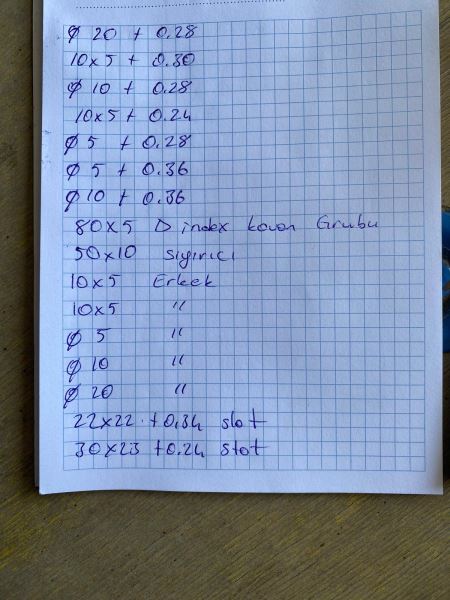 φ 20 + 0.28
10x5 + 0.30
φ 10 + 0.28
10x5 + 0.24
φ 5 + 0.28
φ 5 + 0.36
φ 10 + 0.36
80x5 D index kovan Grubu
50x10 sıyırıcı
10x5 Erkek
10x5 "
φ 5 "
φ 10 "
φ 20 "
22x22 +0.34 slot
30x23 +0.24 slot